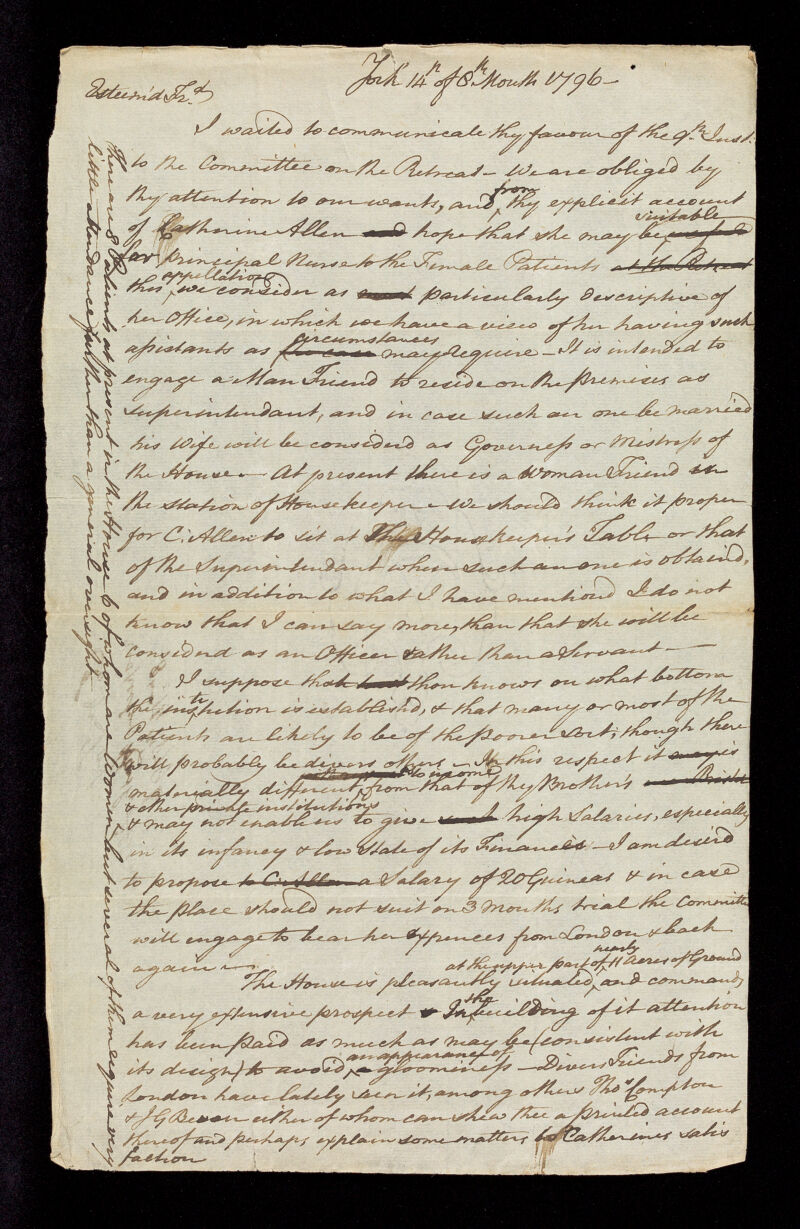 York 14th of 8th Month 1796 -
Esteem'd Frd
I waited to communicate thy favour of the 9th Inst:
to the Committee on the Retreat - We are obliged by
thy attention to our wants, and from thy explicit account
of Catherine Allen and hope that she may be suitable
for principal Nurse to the Female Patients at the Retreat
this appellation we consider as most particularly descriptive of
her Office, in which we have a view of her having such
assistants as circumstances may require - It is intended to
engage a Man Friend to reside on the premises as
superintendant, and in case such an one be married
his Wife will be considered as Governess or Mistress of
the House. - At present there is a Woman Friend in
the station of Housekeeper - We should think it proper
for C. Allen to sit at the Housekeeper's Table or that
of the Superintendant when such an one is obtaind,
and in addition to what I have mentioned I do not
know that I can say more, than that she will be
considerd as an Officer rather than a Servant -
I suppose that thou knows on what bottom
the institution is establish'd, & that many or most of the
Patients are likely to be of the poorer sort, though there
will probably be divers others - In this respect it may is
materially different, as to income from that of thy Brother's
& other private institutions
& may not enable us to give such high Salaries, especially
in its infancy & low state of its Finances - I am desired
to propose to C. Allen a Salary of 20 Guineas & in case
the place should not suit on 3 months trial the Committee
will engage to bear her expences from London & back
again -
at the upper part of nearly 11 Acres of Ground
The House is pleasantly situated, and commands
a very extensive prospect & In the building of it attention
has been paid as much as may be (consistent with
its design) to avoid, an appearance of gloominess - Divers Friends from
London have lately seen it, among others Thos Compton
& J G Bevan either of whom can shew thee a printed account
thereof and perhaps explain some matters to Catherines satis
faction
There are 8 Patients at present in the House 6 of whom are Women, but several of them require very
little attendance further than a general oversight